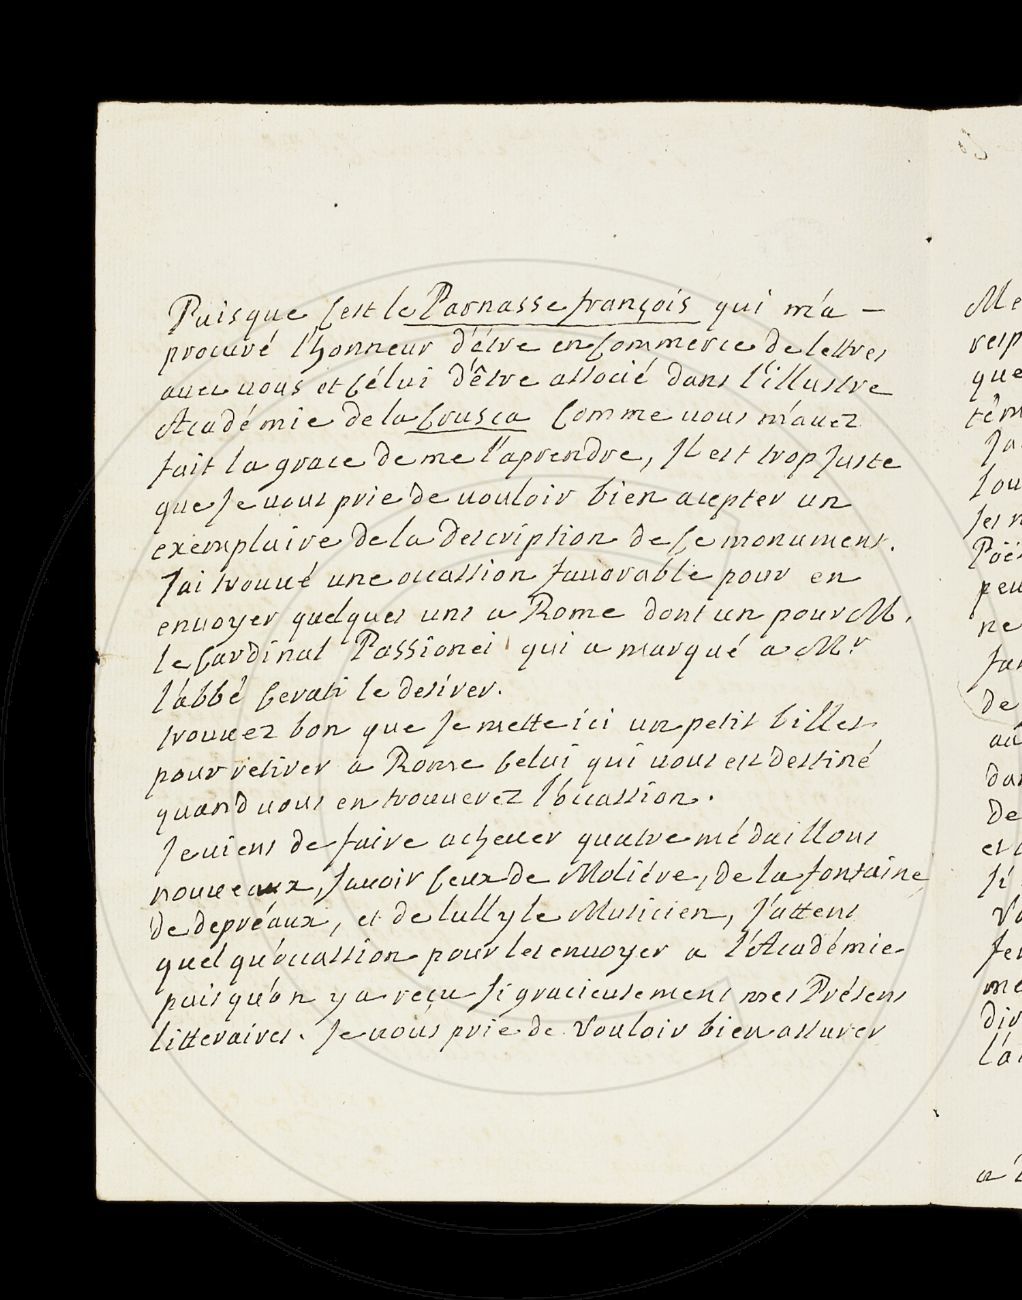 Puisque c'est le Parnasse françois qui m'a –
procuré l'honneur d'étre en commerce de lettres
avec vous et célui d'être associé dans l'illustre
Académie de la Crusca comme vous m'avez
fait la grace de me l'aprendre, Il est trop juste
que Je vous prie de vouloir bien acepter un
exemplaire de la description de ce monument.
J'ai trouvé une occassion favorable pour en
envoyer quelques uns a Rome dont un pour M.
le Cardinal Passionei qui a marqué a Mr
l'abbé Cerati le desirer.
trouvez bon que Je mette ici un petit billet
pour retirer a Rome celui qui vous est destiné
quand vous en trouverez l'occassion.
Je viens de faire achever quatre médaillons
nouveaux, savoir ceux de Moliére, de la fontaine
de depréaux, et de lully le Musicien, J'attens
quelqu'occassion pour les envoyer a l'Académie
puisqu'on y a reçu si gracieusement mes Présens
litteraires. Je vous prie de vouloir bien assurer
Me
resp
que
Ja
sou
ses
Poë
peu
ne
fai
de
au
da
De
et
si
me
div
l'a
a